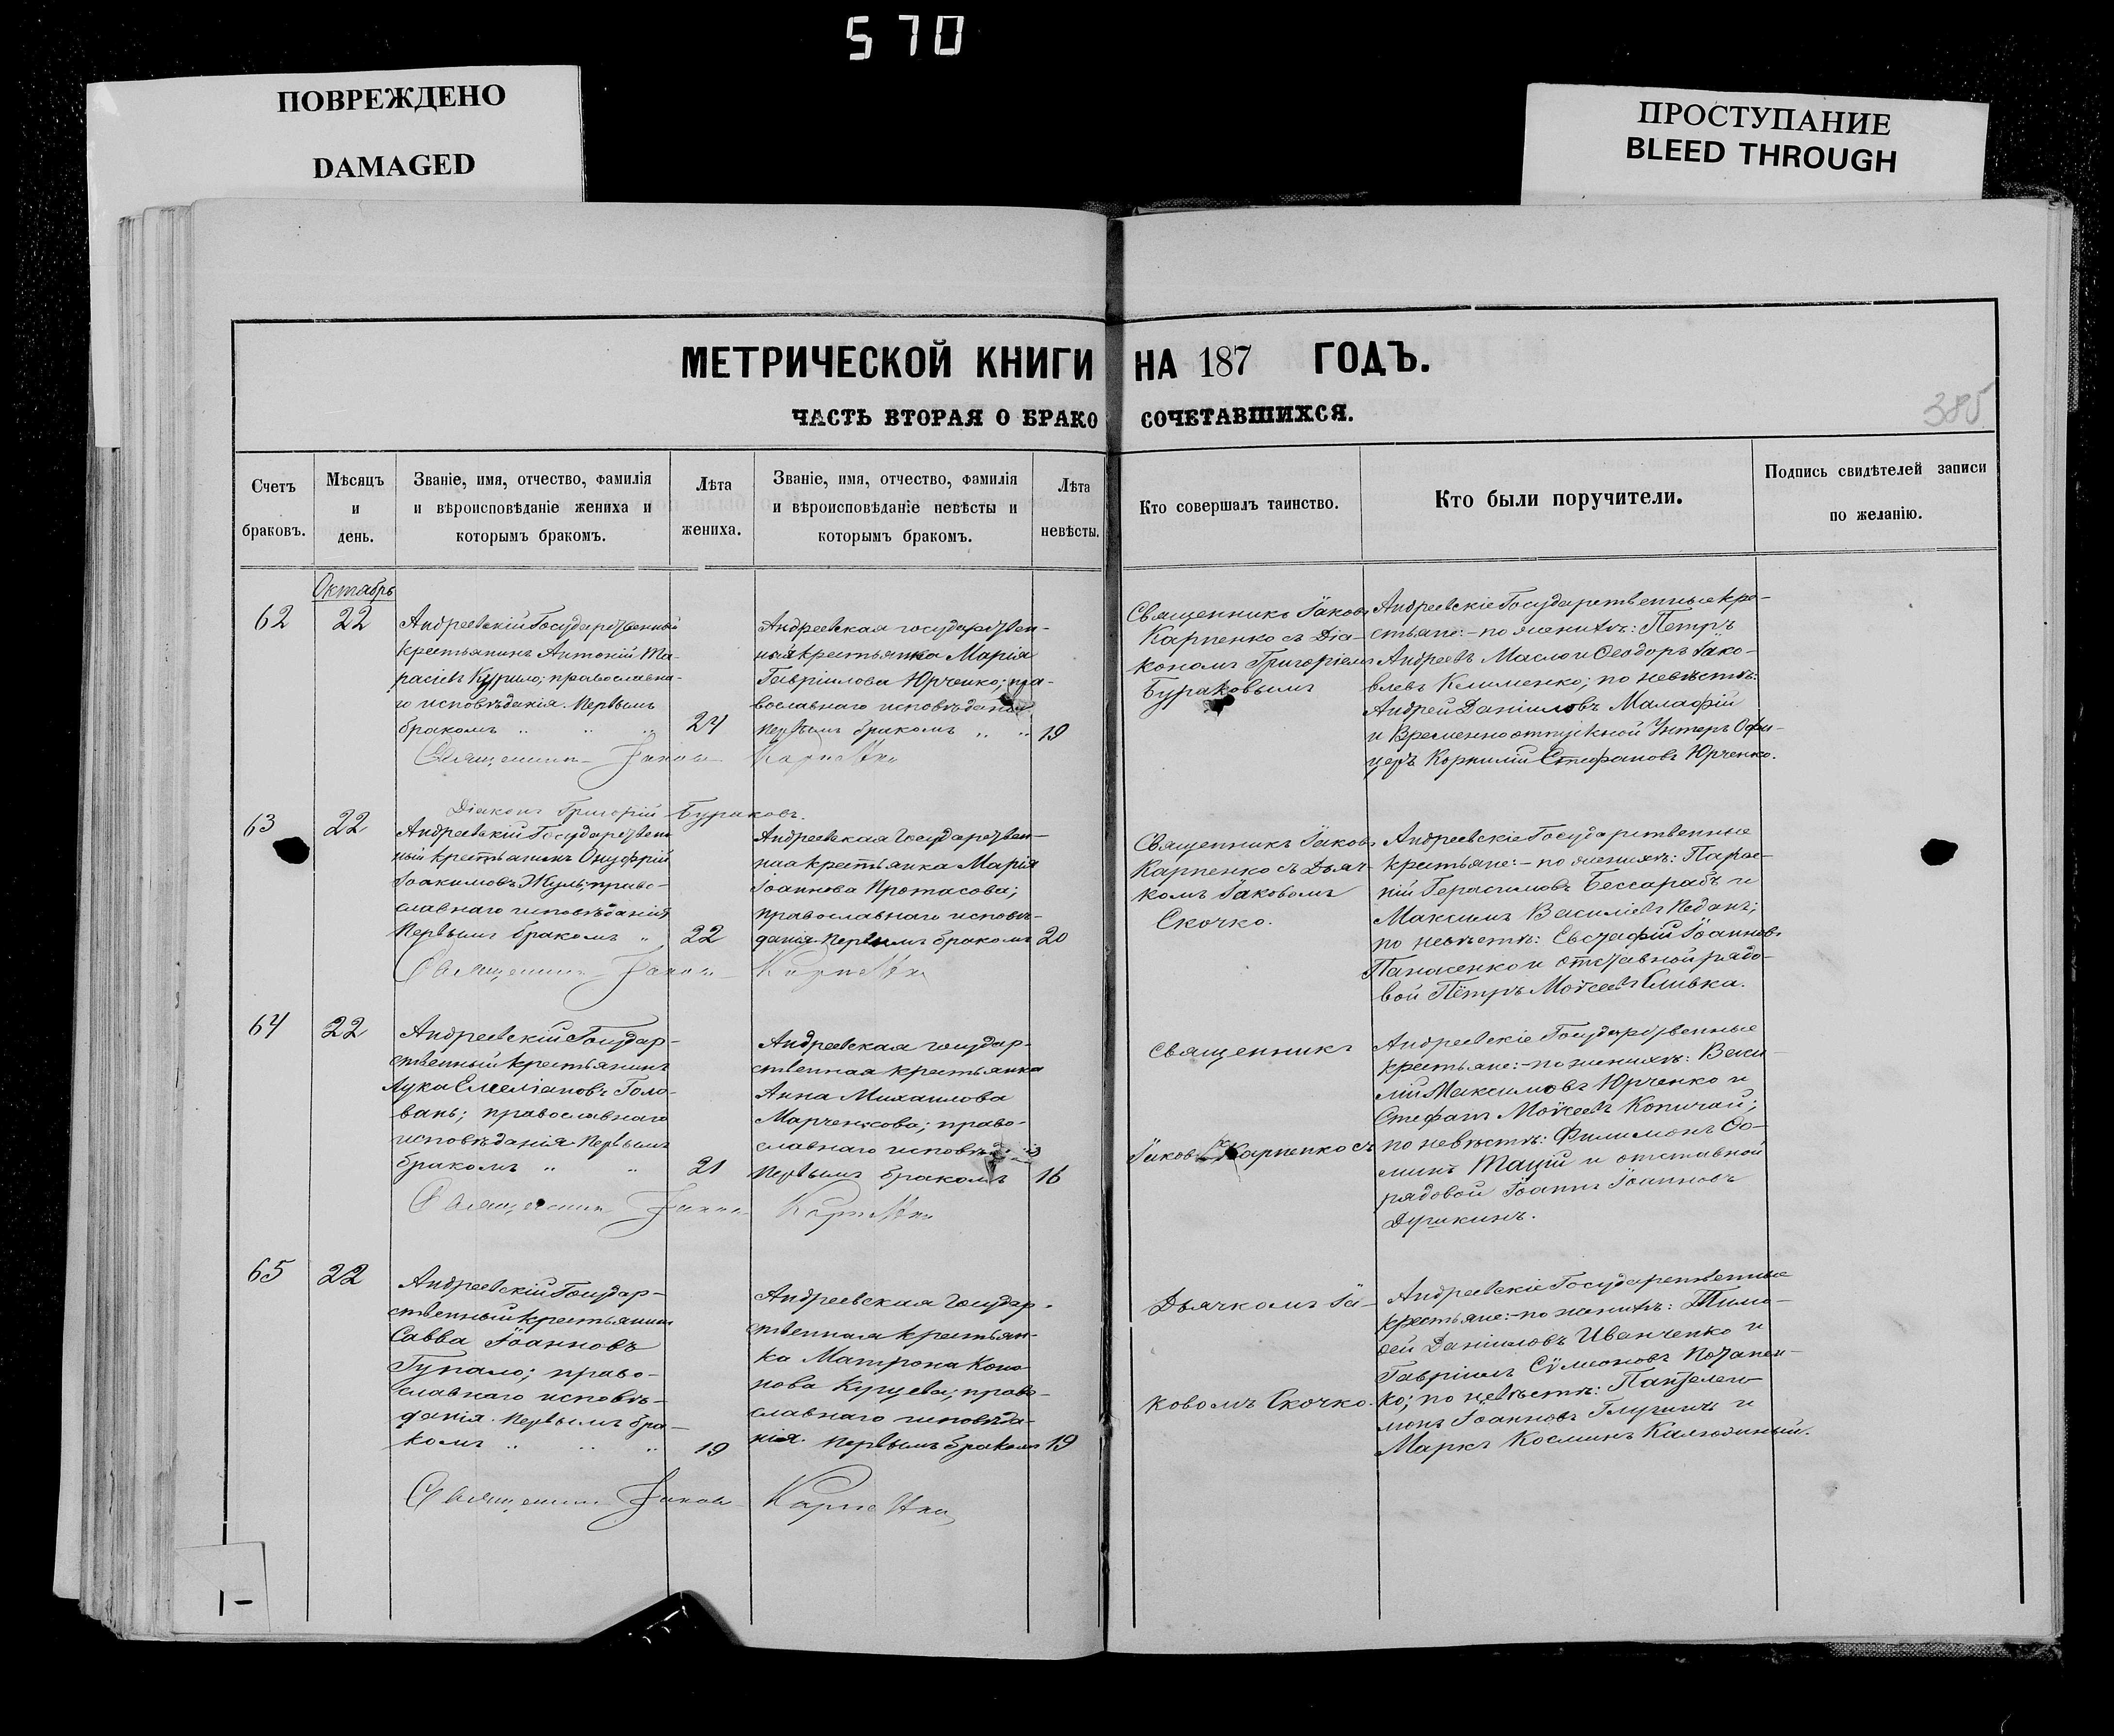 570
ПОВРЕЖДЕНО
DAMAGED
ПРОСТУПАНИЕ
BLEED THROUGH
МЕТРИЧЕСКОЙ КНИГИ НА 187 ГОДЪ.
ЧАСТЬ ВТОРАЯ О БРАКОСОЧЕТАВШИХСЯ.
385
Счетъ
браковъ.
Мѣсяцъ
и
день.
Званіе, имя, отчество, фамилія
и вѣроисповѣданіе жениха и
которымъ бракомъ.
Лѣта
жениха.
Званіе, имя, отчество, фамилія
и вѣроисповѣданіе невѣсты и
которымъ бракомъ.
Лѣта
невѣсты.
Кто совершалъ таинство.
Кто были поручители.
Подпись свидѣтелей записи
по желанію.
Октябрь
62
22
Андреевскій Государственный
крестьянинъ Антоній Та-
расіевъ Курило; православна-
го исповѣданія. Первымъ
бракомъ " " "
24
Андреевская государствен-
ная крестьянка Марія
Гавріилова Юрченко; пра-
вославнаго исповѣданія
первымъ бракомъ " "
19
Священникъ Іаковъ
Карпенко съ Діа-
кономъ Григоріемъ
Бураковымъ
Андреевскіе Государственные кре-
стьяне:- по женихѣ: Петръ
Андреевъ Масло и Ѳеодоръ Іако-
влевъ Клименко; по невѣстѣ:
Андрей Даніиловъ Малафій
и Временноотпускной Унтеръ Офи-
церъ Корнилій Стефановъ Юрченко.
Священникъ Іаковъ Карпенко
Діаконъ Григорій Бураковъ.
63
22
Андреевскій Государствен
ный крестьянинъ Онуфрій
Іоакимовъ Жуль; право-
славнаго исповѣданія
Первымъ бракомъ "
22
Андреевская Государствен-
ная крестьянка Марія
Іоаннова Протасова;
православнаго исповѣ-
данія. Первымъ бракомъ
20
Священникъ Іаковъ
Карпенко съ Дьяч-
комъ Іаковомъ
Скочко.
Андреевскіе Государственные
крестьяне:- по женихѣ:
Герасимовъ Бессарабъ и
Максимъ Василіевъ Педанъ;
по невѣстѣ: Евстафій Іоанновъ
Панасенко и отставной рядо-
вой Пётръ Моѵсеевъ Сливка.
Священникъ Іаковъ Карпенко
64
22
Андреевскій Государ-
ственный крестьянинъ
Лука Емеліановъ Голо-
вань; православнаго
исповѣданія. Первымъ
бракомъ " "
21
Андреевская государ-
ственная крестьянка
Анна Михаилова
Марченкова; право-
славнаго исповѣданія
Первымъ бракомъ
16
Священникъ
Іаковъ Карпенко съ
Андреевскіе Государственные
крестьяне:- по женихѣ: Васи
лій Максимовъ Юрченко и
Стефанъ Моѵсеевъ Копичай;
по невѣстѣ: Филимонъ Ѳо-
минъ Тацій и отставной
рядовой Іоаннъ Іоанновъ
Душкинъ.
Священникъ Іаковъ Карпенко
65
22
Андреевскій Государ-
ственный крестьянинъ
Савва Іоанновъ
Гупало; право-
славнаго исповѣ-
данія. Первымъ бра-
комъ " " "
19
Андреевская Государ-
ственная крестьян-
ка Матрона Коно
нова Куцева; право-
славнаго исповѣда-
нія. Первымъ бракомъ
19
Дьячкомъ Іа-
ковомъ Скочко.
Андреевскіе Государственные
крестьяне:- по женихѣ: Тимо-
ѳей Даніиловъ Иванченко и
Гавріилъ Сѵмеоновъ Потапен-
ко; по невѣстѣ: Пантелеи-
монъ Іоанновъ и
Маркъ Косминъ
Священникъ Іаковъ Карпенко
1-